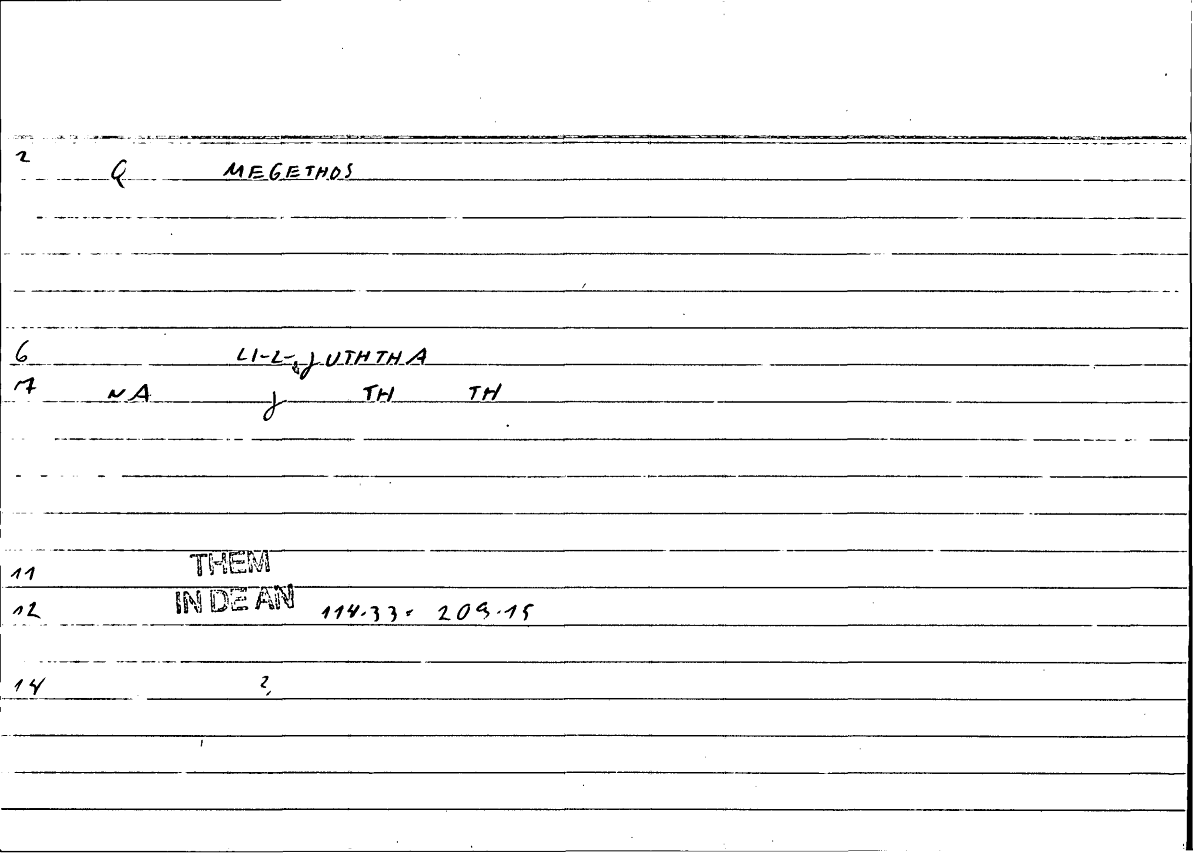 2 Q MEGETHOS
6 LI-L-JUTHTHA
7 NA J TH TH
11 THEM
12 IN DE AN 114.33 209.15
14 2,